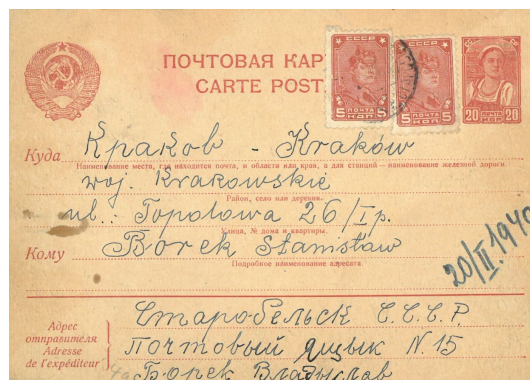 ПОЧТОВАЯ КАР
CARTE POST
СССР
5 ПОЧТА 5
КОП.
СССР
5 ПОЧТА 5
КОП.
20 ПОЧТА 20
КОП.
Куда Краков - Kraków
Наименование места, где находится почта, и области или края, а для станций — наименование железной дороги.
woj. Krakowskie
Район, село или деревня.
ul.: Topolowa 26/I p.
Улица, № дома и квартиры.
Кому Borek Stanisław
Подробное наименование адресата.
20/II. 1940
Адрес
отправителя
Adresse
de l'expéditeur
Старобельск С.С.С.Р
Почтовый ящык N. 15
Борек Владыслав